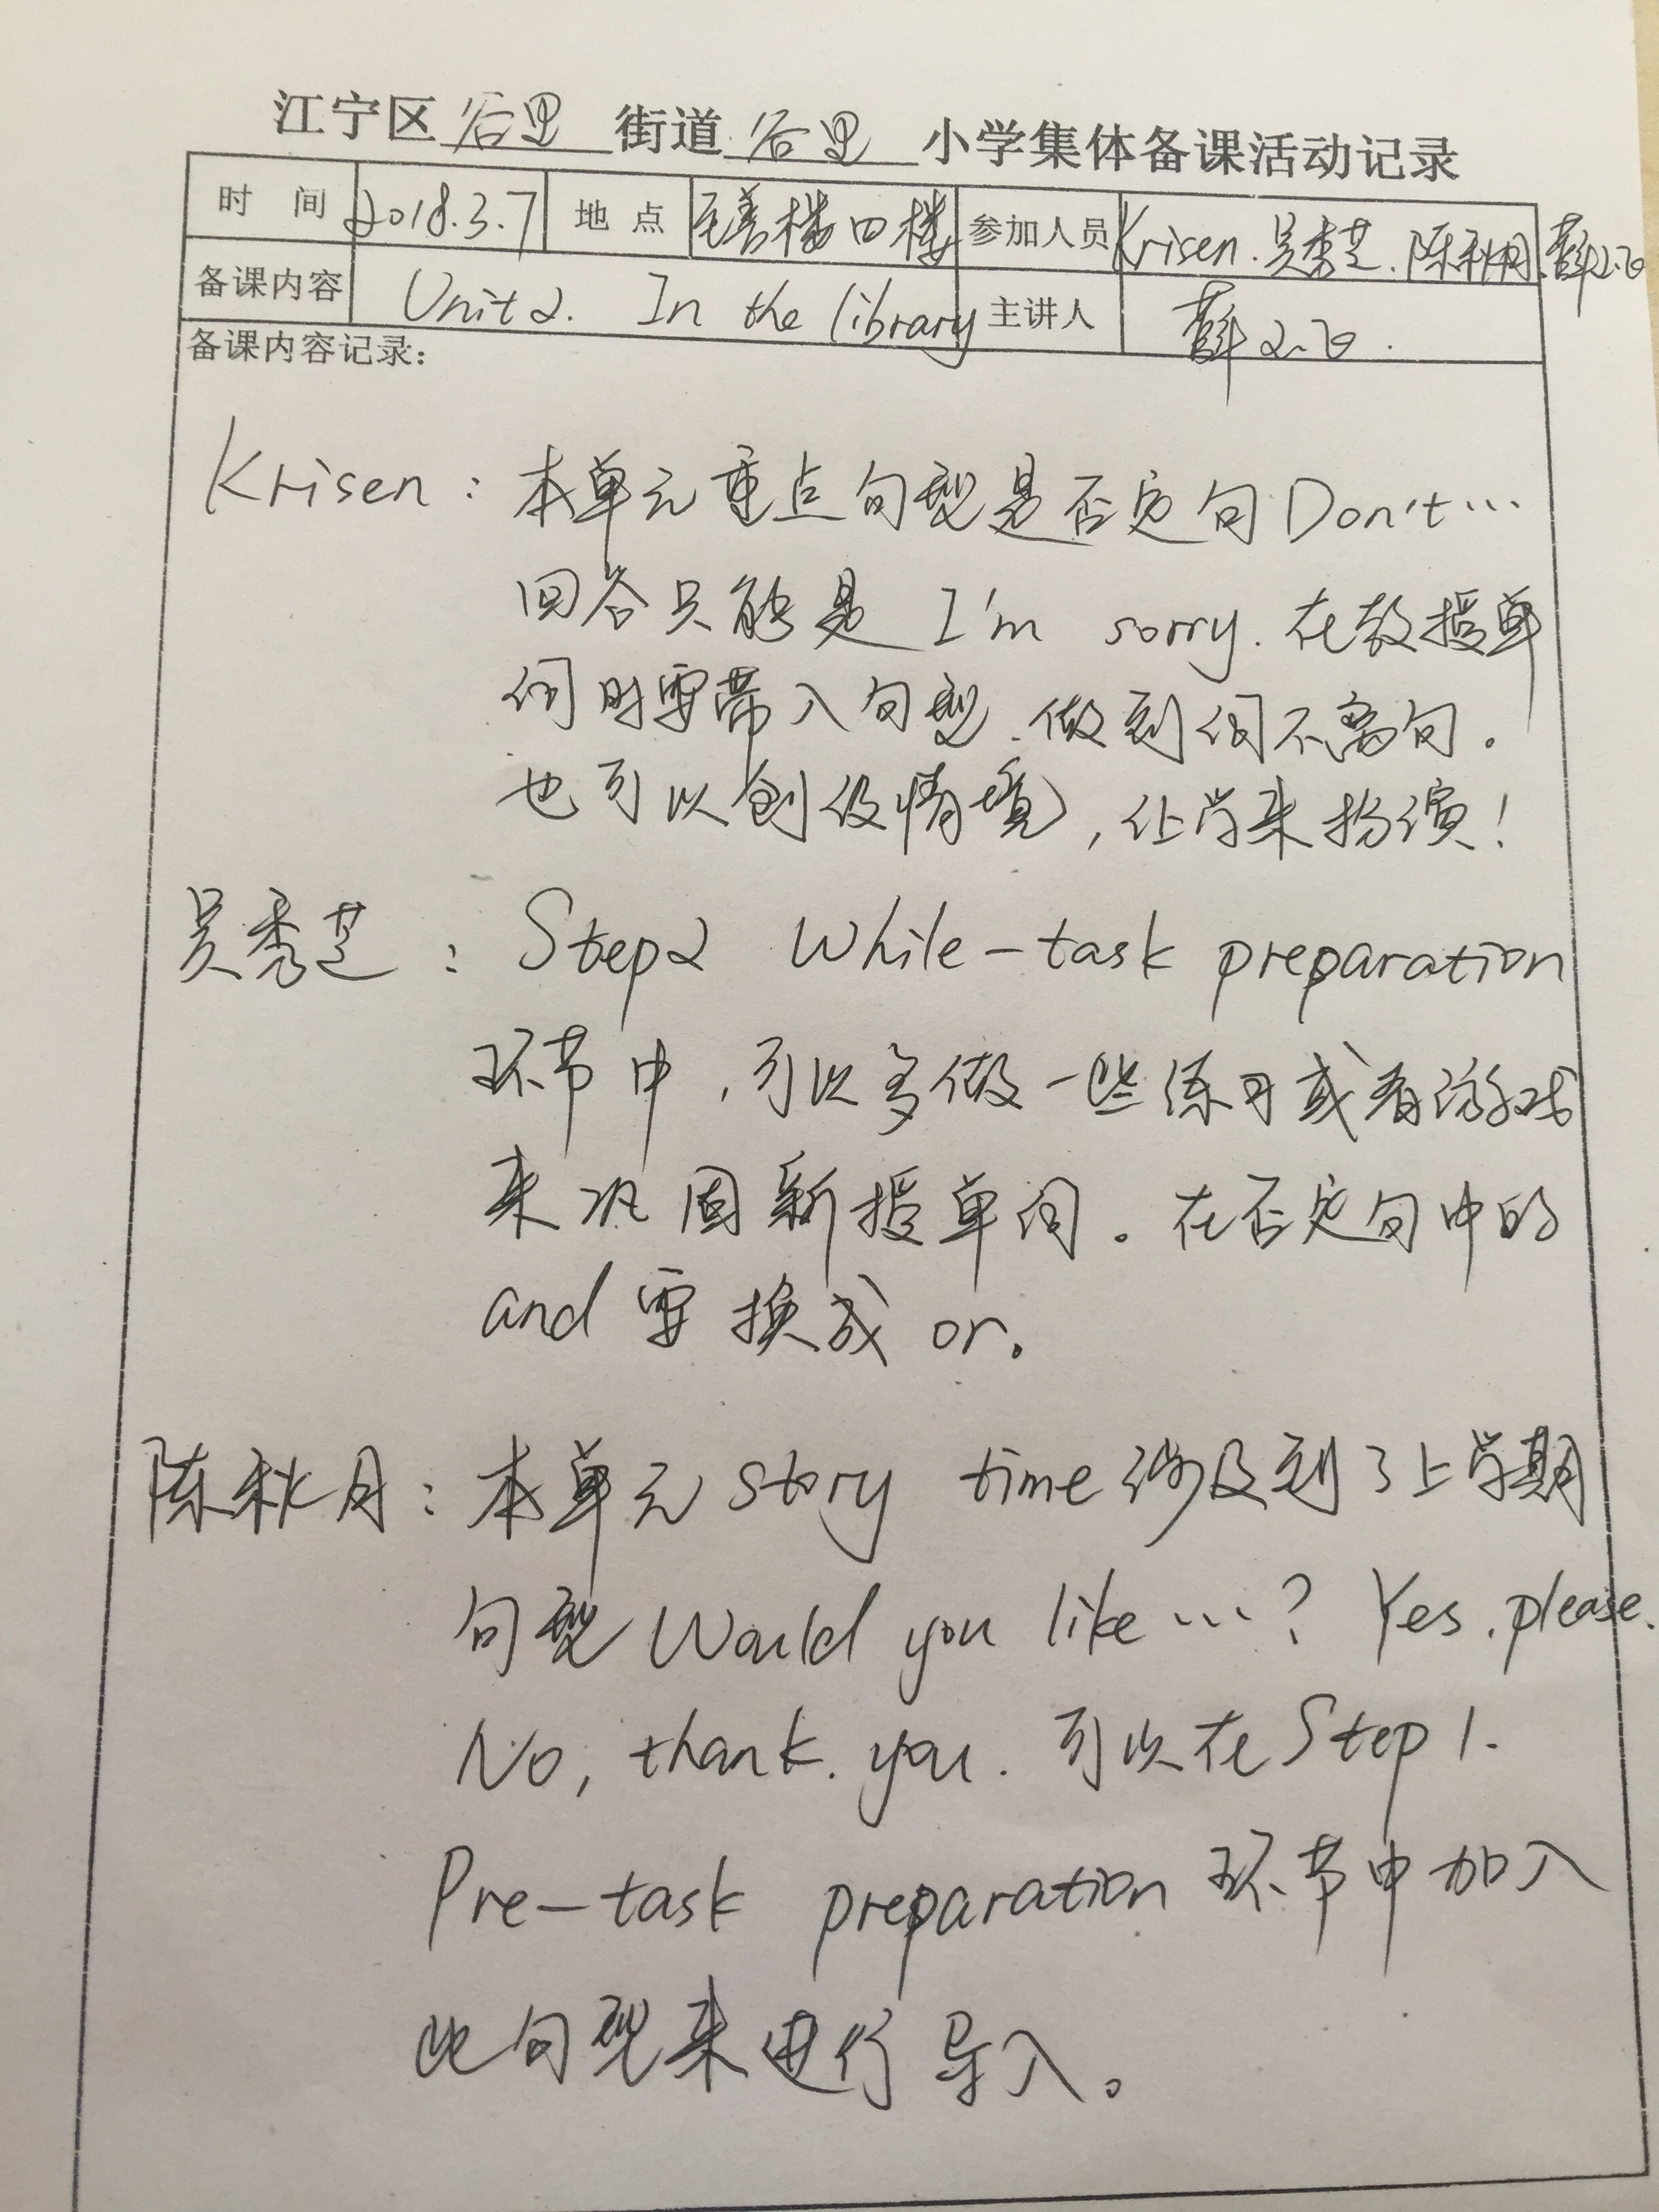 江宁区谷里街道谷里小学集体备课活动记录
时间 2018.3.7 地点 至善楼四楼 参加人员 Krisen.吴秀芝.陈秋月.薛
备课内容 Unit2. In the library 主讲人 薛
备课内容记录：
Krisen：本单元重点句型是否定句Don't…
回答只能是 I'm sorry. 在教授单
词时要带入句型.做到词不离句。
也可以创设情境，让学来扮演！
吴秀芝：Step2 While-task preparation
环节中，可以多做一些练习或者游戏
来巩固新授单词。在否定句中的
and要换成or。
陈秋月：本单元story time涉及到了上学期
句型Would you like…? Yes, please.
No, thank. you. 可以在Step 1.
Pre-task preparation 环节中加入
此句型来进行导入。